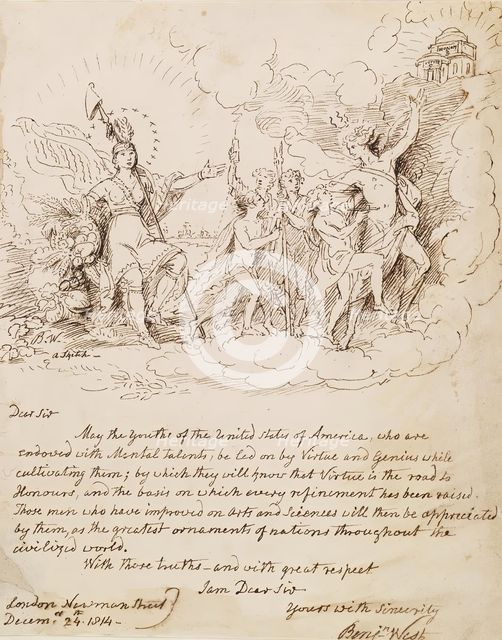 B.W.
a Sketch —
Dear Sir
May the Youths of the United States of America, who are
endowed with Mental Talents, be led on by Virtue and Genius while
cultivating them; by which they will know that Virtue is the road to
Honours, and the basis on which every refinement has been raised.
Those men who have improved on Arts and Sciences will then be appreciated
by them, as the greatest ornaments of nations throughout the
civilized world.
With those truths – and with great respect
I am Dear Sir
Yours with Sincerity
Benjn West
London Newman Street
Decemr 24th 1814 –
heritage
heritage
heritage
heritage
heritage